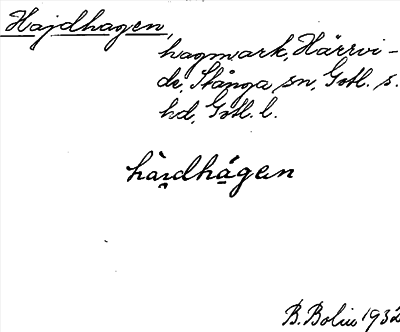 Hajdhagen,
hagmark, Härrvi-
de, Stånga sn, Gotl. s.
hd, Gotl. l.
hàɪ̯dhá̱gen
B. Bolin 1932